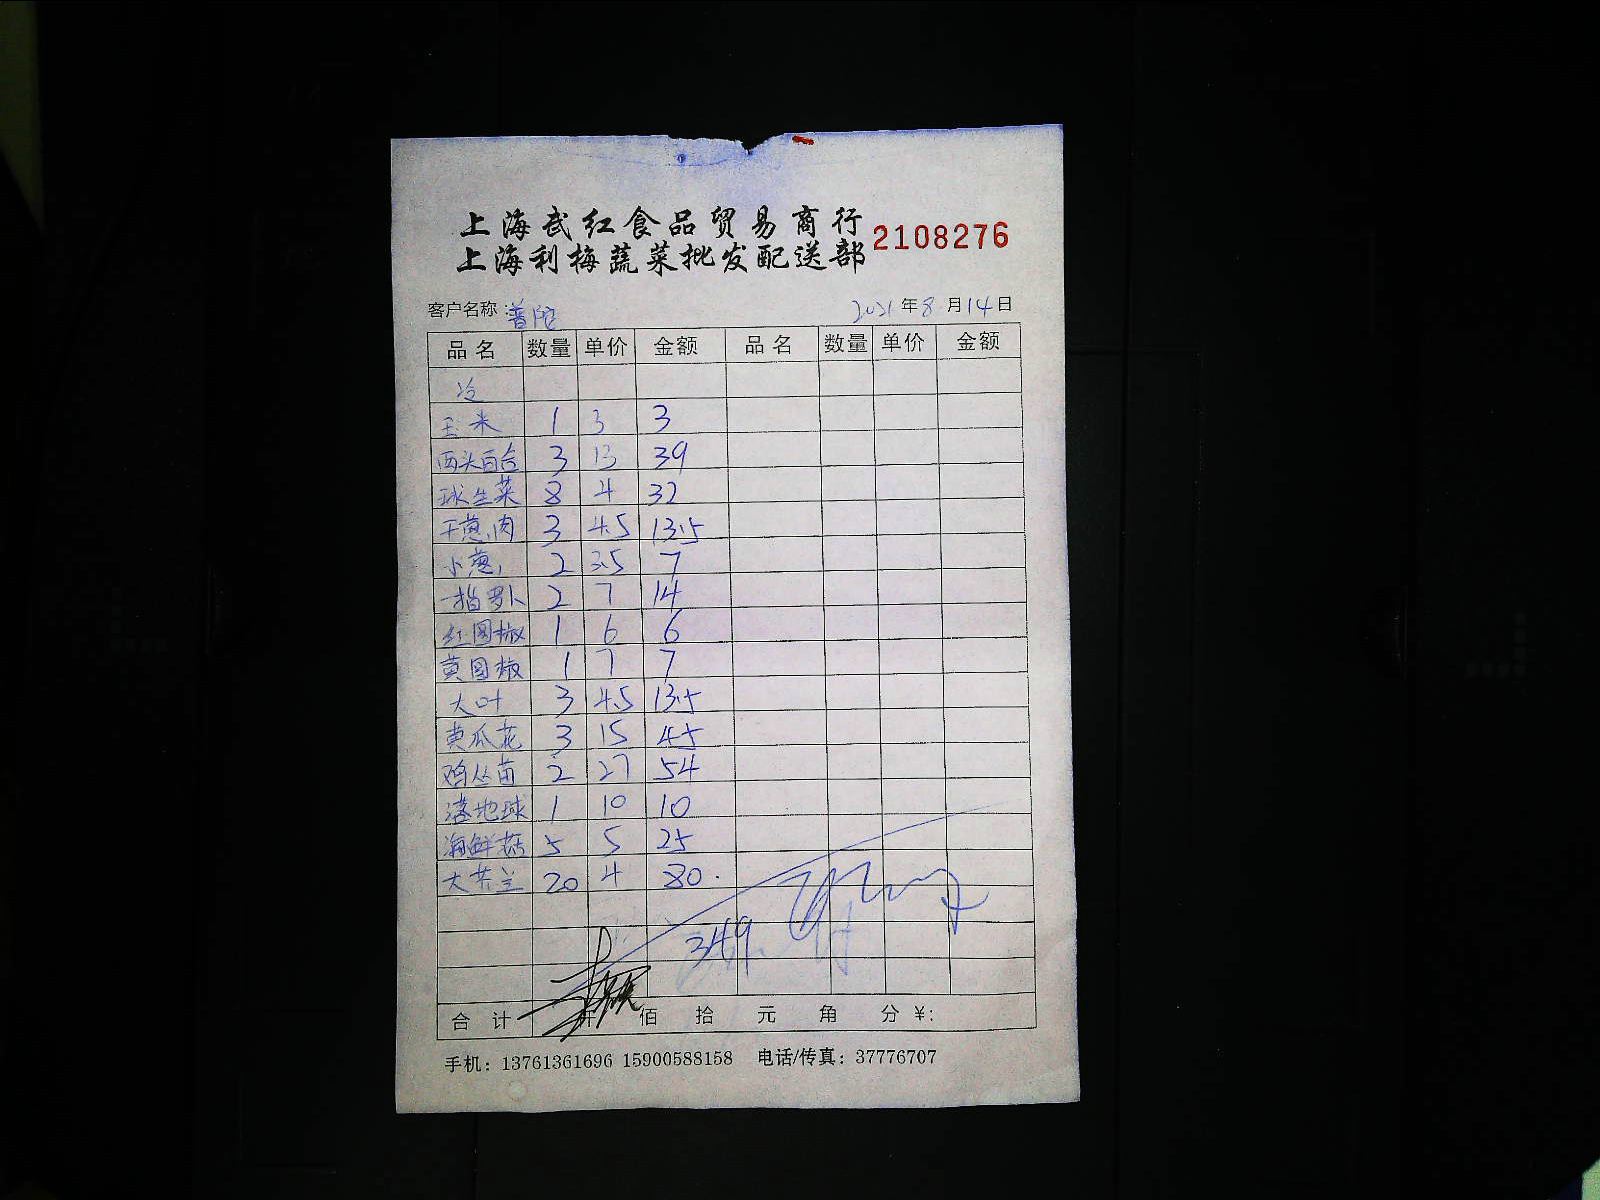 上海武红食品贸易商行
上海利梅蔬菜批发配送部 2108276
客户名称:普陀 2021年8月14日
品名 数量 单价 金额 品名 数量 单价 金额
冷
玉米 1 3 3
西头百合 3 13 39
球生菜 8 4 32
干葱肉 3 4.5 13.5
小葱 2 3.5 7
指萝卜 2 7 14
红圆椒 1 6 6
黄圆椒 1 7 7
大叶 3 4.5 13.5
黄瓜花 3 15 45
鸡丛苗 2 27 54
落地球 1 10 10
海鲜菇 5 5 25
大芥兰 20 4 80.
349
合计 仟 佰 拾 元 角 分 ¥:
手机：13761361696 15900588158 电话/传真：37776707